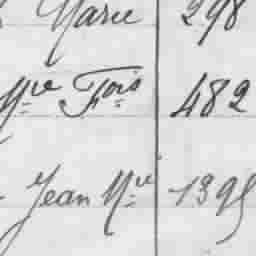 Marie 298
Mve Fois 482
Jean Mve 1395